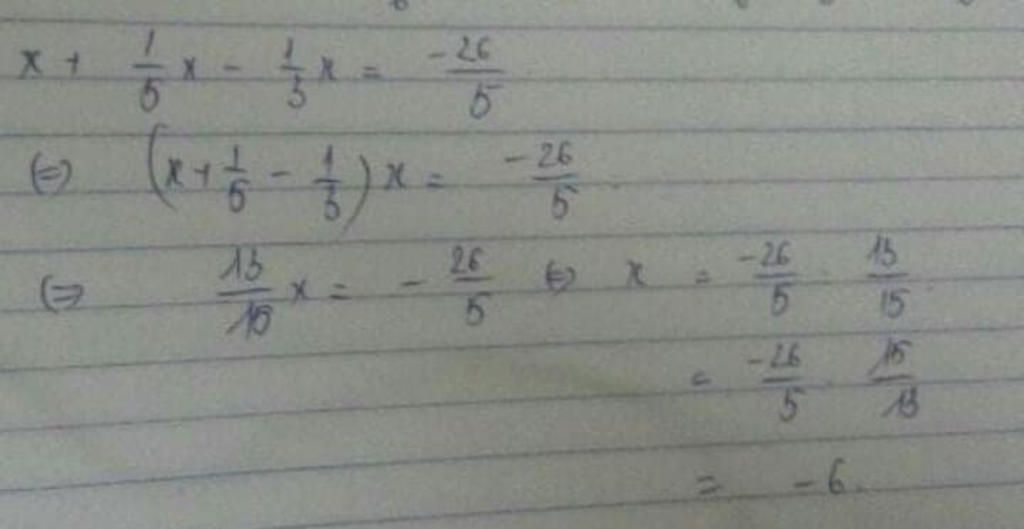 x + 1/5 x - 1/3 x = -26/5
(=) (x + 1/5 - 1/3) x = -26/5
(=) 13/15 x = - 26/5 (=) x = -26/5 : 13/15
= -26/5 . 15/13
= -6.